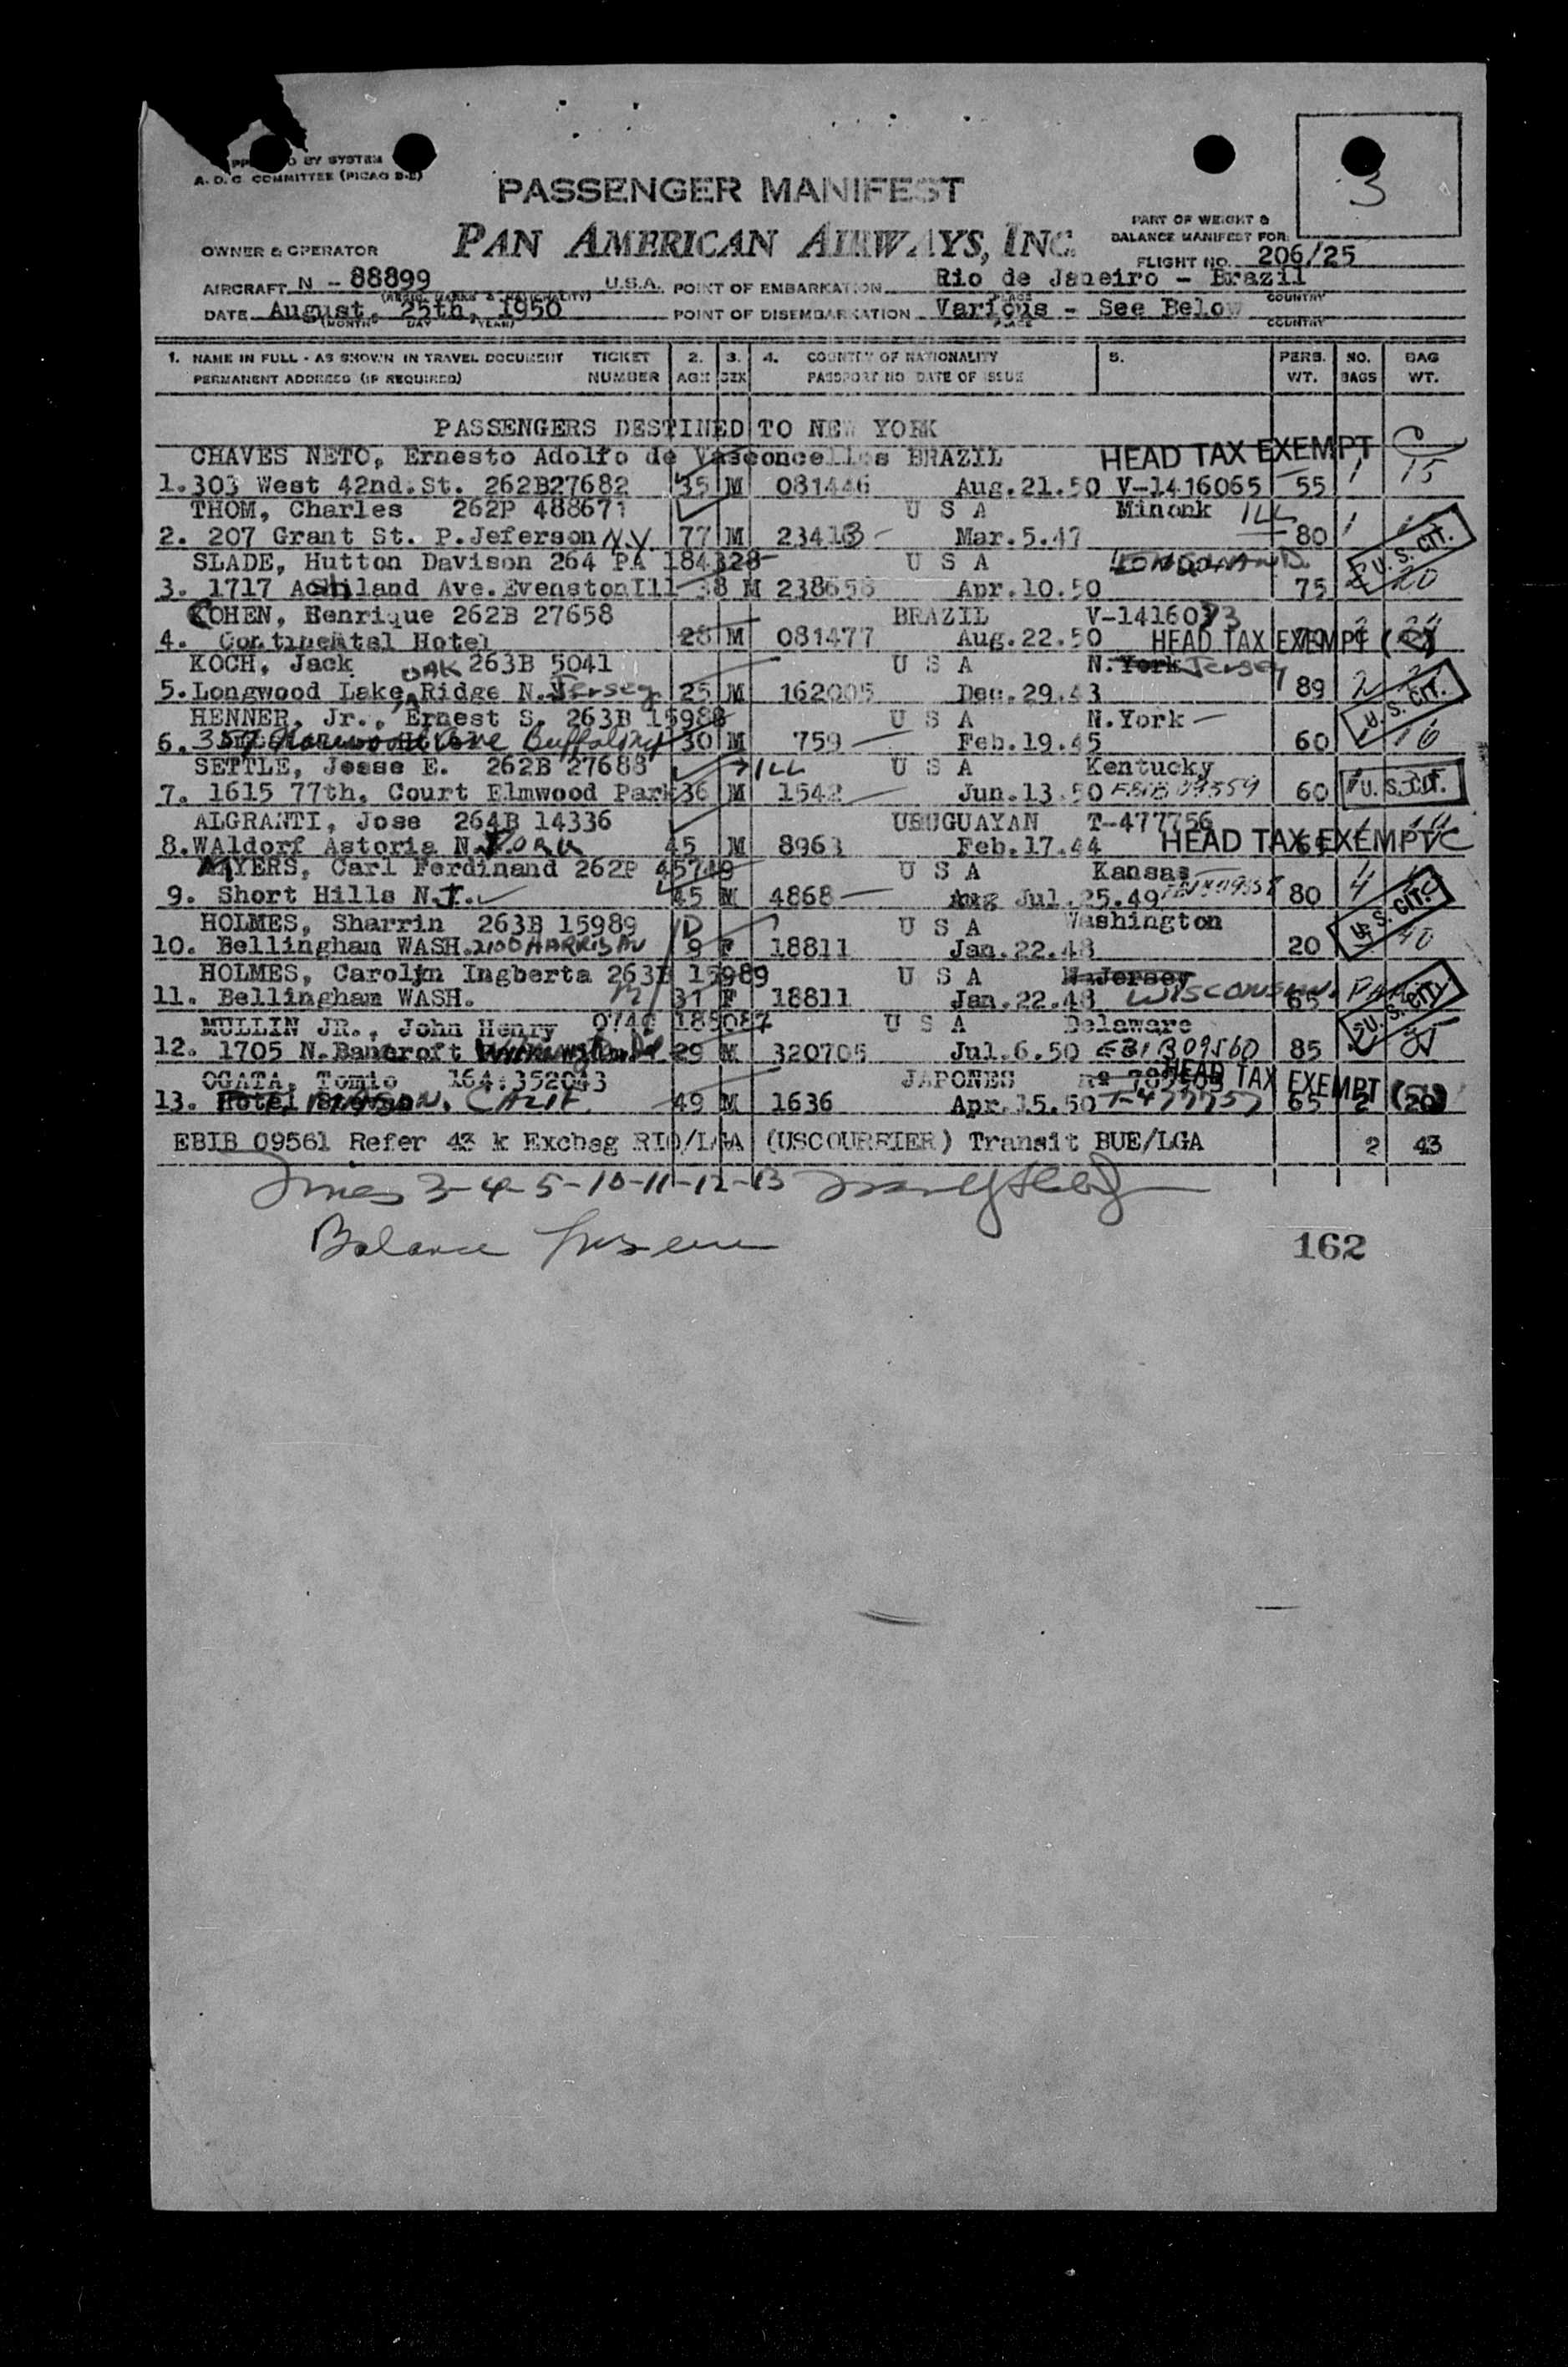 D BY SYSTEM
A. D. C. COMMITTEE (PICAO D-E)
3
PASSENGER MANIFEST
PART OF WEIGHT &
BALANCE MANIFEST FOR
OWNER & OPERATOR
PAN AMERICAN AIRWAYS, INC.
FLIGHT NO. 206/25
AIRCRAFT N - 88899 U.S.A. POINT OF EMBARKATION Rio de Janeiro - Brazil
(REGIS. MARKS & NATIONALITY) PLACE COUNTRY
DATE August, 25th, 1950 POINT OF DISEMBARKATION Various - See Below
(MONTH DAY YEAR) PLACE COUNTRY
1. NAME IN FULL - AS SHOWN IN TRAVEL DOCUMENT TICKET 2. 3. 4. COUNTRY OF NATIONALITY 5. PERS. NO. BAG
PERMANENT ADDRESS (IF REQUIRED) NUMBER AGE SEX PASSPORT NO DATE OF ISSUE WT. BAGS WT.
PASSENGERS DESTINED TO NEW YORK
CHAVES NETO, Ernesto Adolfo de Vasconcellos BRAZIL HEAD TAX EXEMPT
1. 303 West 42nd. St. 262B27682 35 M 081446 Aug.21.50 V-1416065 55 1 15
THOM, Charles 262P 488671 U S A Minonk ILL
2. 207 Grant St. P.Jeferson N.Y. 77 M 23413 Mar.5.47 80 1
SLADE, Hutton Davison 264 PA 184328 U S A U.S. CIT.
3. 1717 Ashland Ave.Evenston Ill 38 M 238658 Apr.10.50 75 2 20
COHEN, Henrique 262B 27658 BRAZIL V-1416073
4. Continental Hotel 28 M 081477 Aug.22.50 HEAD TAX EXEMPT
KOCH, Jack OAK 263B 5041 U S A N.York Jersey
5. Longwood Lake, Ridge N.Jersey 25 M 162005 Dec.29.43 89 2 U.S. CIT.
HENNER, Jr., Ernest S. 263B 15988 U S A N.York
6. 357 Norwood Ave Buffalo NY 30 M 759 Feb.19.45 60 16
SETTLE, Jesse E. 262B 27688 ILL U S A Kentucky
7. 1615 77th. Court Elmwood Park 36 M 1542 Jun.13.50 EBIB 09559 60 U.S. CIT.
ALGRANTI, Jose 264B 14336 URUGUAYAN T-477756
8. WAldorf Astoria N.YORK 45 M 8963 Feb.17.44 HEAD TAX EXEMPT
MYERS, Carl Ferdinand 262P 45749 U S A Kansas
9. Short Hills N.J. 45 M 4868 Aug Jul.25.49 80 4 U.S. CIT.
HOLMES, Sharrin 263B 15989 U S A Washington
10. Bellingham WASH. 2100 HARRIS AV 9 F 18811 Jan.22.48 20 40
HOLMES, Carolyn Ingberta 263B 15989 U S A N.Jersey
11. Bellingham WASH. 31 F 18811 Jan.22.48 WISCONSIN. 65 U.S. CIT.
MULLIN JR., John Henry 0740 185087 U S A Delaware
12. 1705 N.Bancroft Wilmington Del 29 M 320705 Jul.6.50 EBIB 09560 85
OGATA, Tomio 164:352043 JAPONES HEAD TAX EXEMPT
13. Hotel CALIF. 49 M 1636 Apr.15.50 T-477757 65 2 (20)
EBIB 09561 Refer 43 k Excbag RIO/LGA (USCOURRIER) Transit BUE/LGA 2 43
3-4-5-10-11-12-13
Balance
162